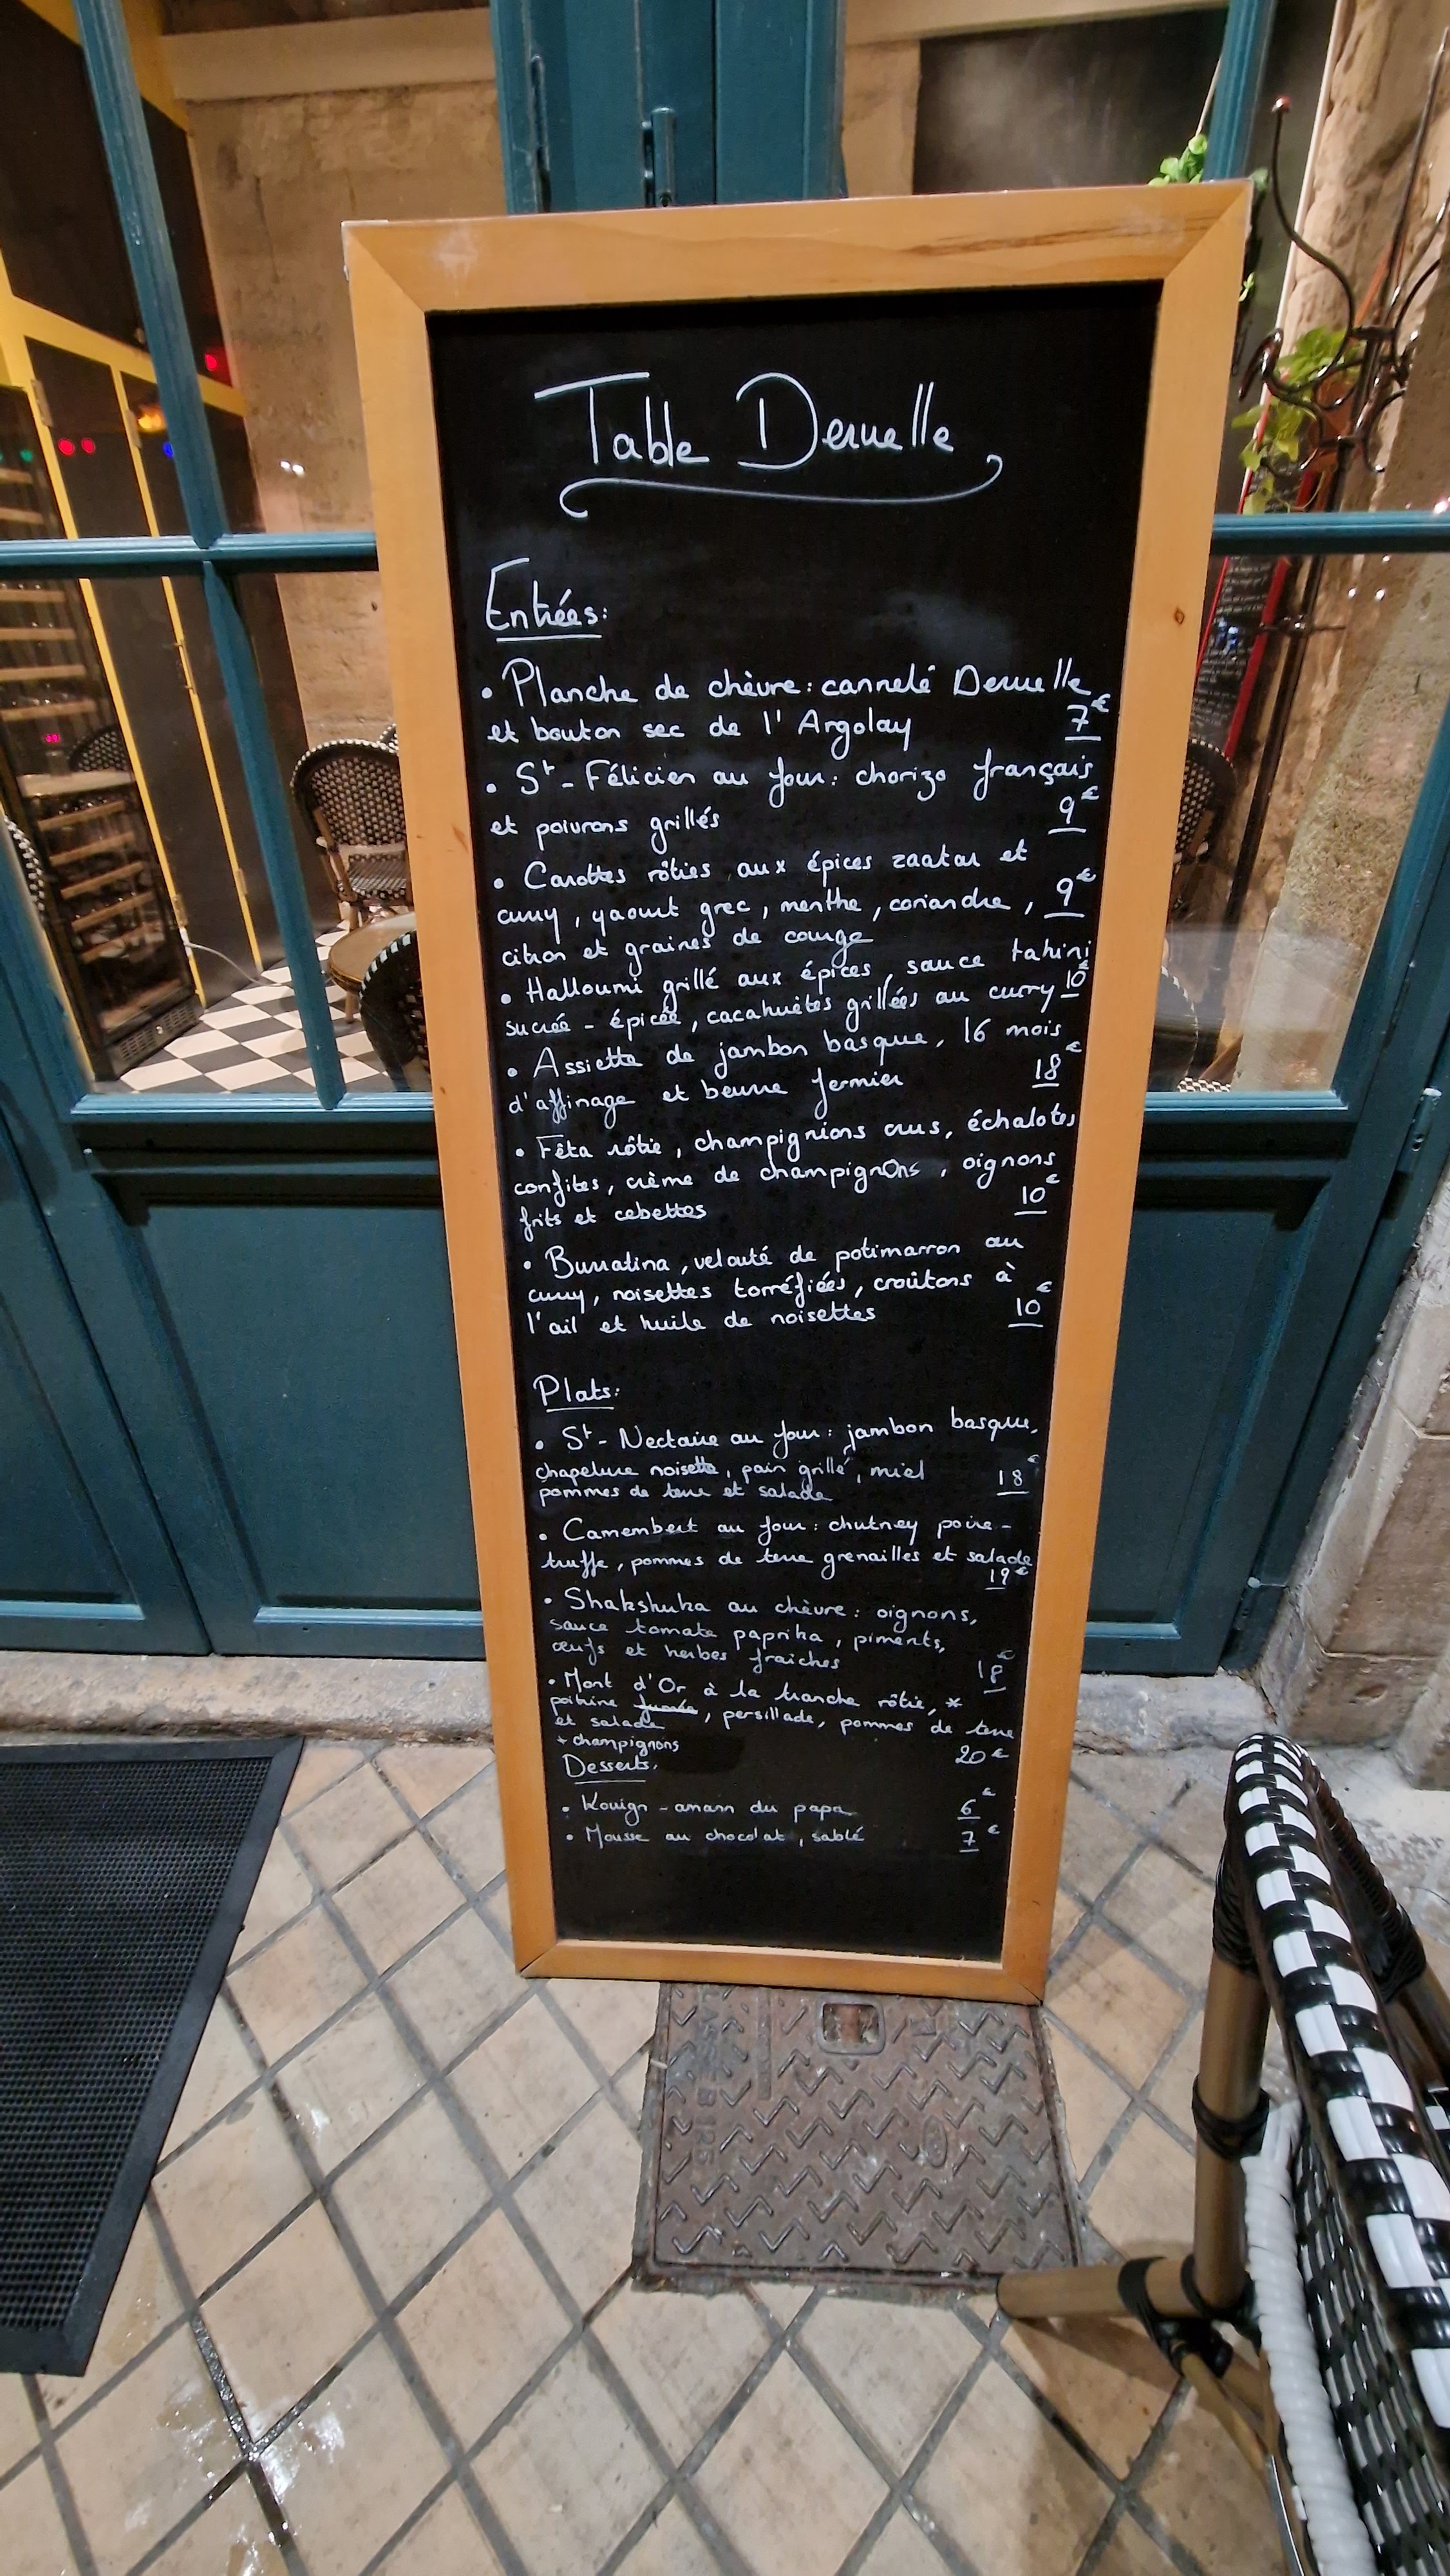 Table Deruelle
Entrées:
• Planche de chèvre : cannelé Deruelle
et bouton sec de l'Argolay 7€
• St-Félicien au four : chorizo français
et poivrons grillés 9€
• Carottes rôties aux épices zaatar et
curry, yaourt grec, menthe, coriandre, 9€
citron et graines de courge
• Halloumi grillé aux épices, sauce tahini
sucrée - épicée, cacahuètes grillées au curry 10€
• Assiette de jambon basque, 16 mois
d'affinage et beurre fermier 18€
• Fêta rôtie, champignions crus, échalotes
confites, crème de champignons, oignons
frits et cebettes 10€
• Burratina, velouté de potimarron au
curry, noisettes torréfiées, croûtons à
l'ail et huile de noisettes 10€
Plats:
• St-Nectaire au four : jambon basque,
chapelure noisette, pain grillé, miel 18€
pommes de terre et salade
• Camembert au four : chutney poire-
truffe, pommes de terre grenailles et salade
19€
• Shakshuka au chèvre : oignons,
sauce tomate paprika, piments,
œufs et herbes fraiches 18€
• Mont d'Or à la tranche rôtie, *
poitrine fumée, persillade, pommes de terre
et salade
* champignons 20€
Desserts:
• Kouign-amann du papa 6€
• Mousse au chocolat, sablé 7€